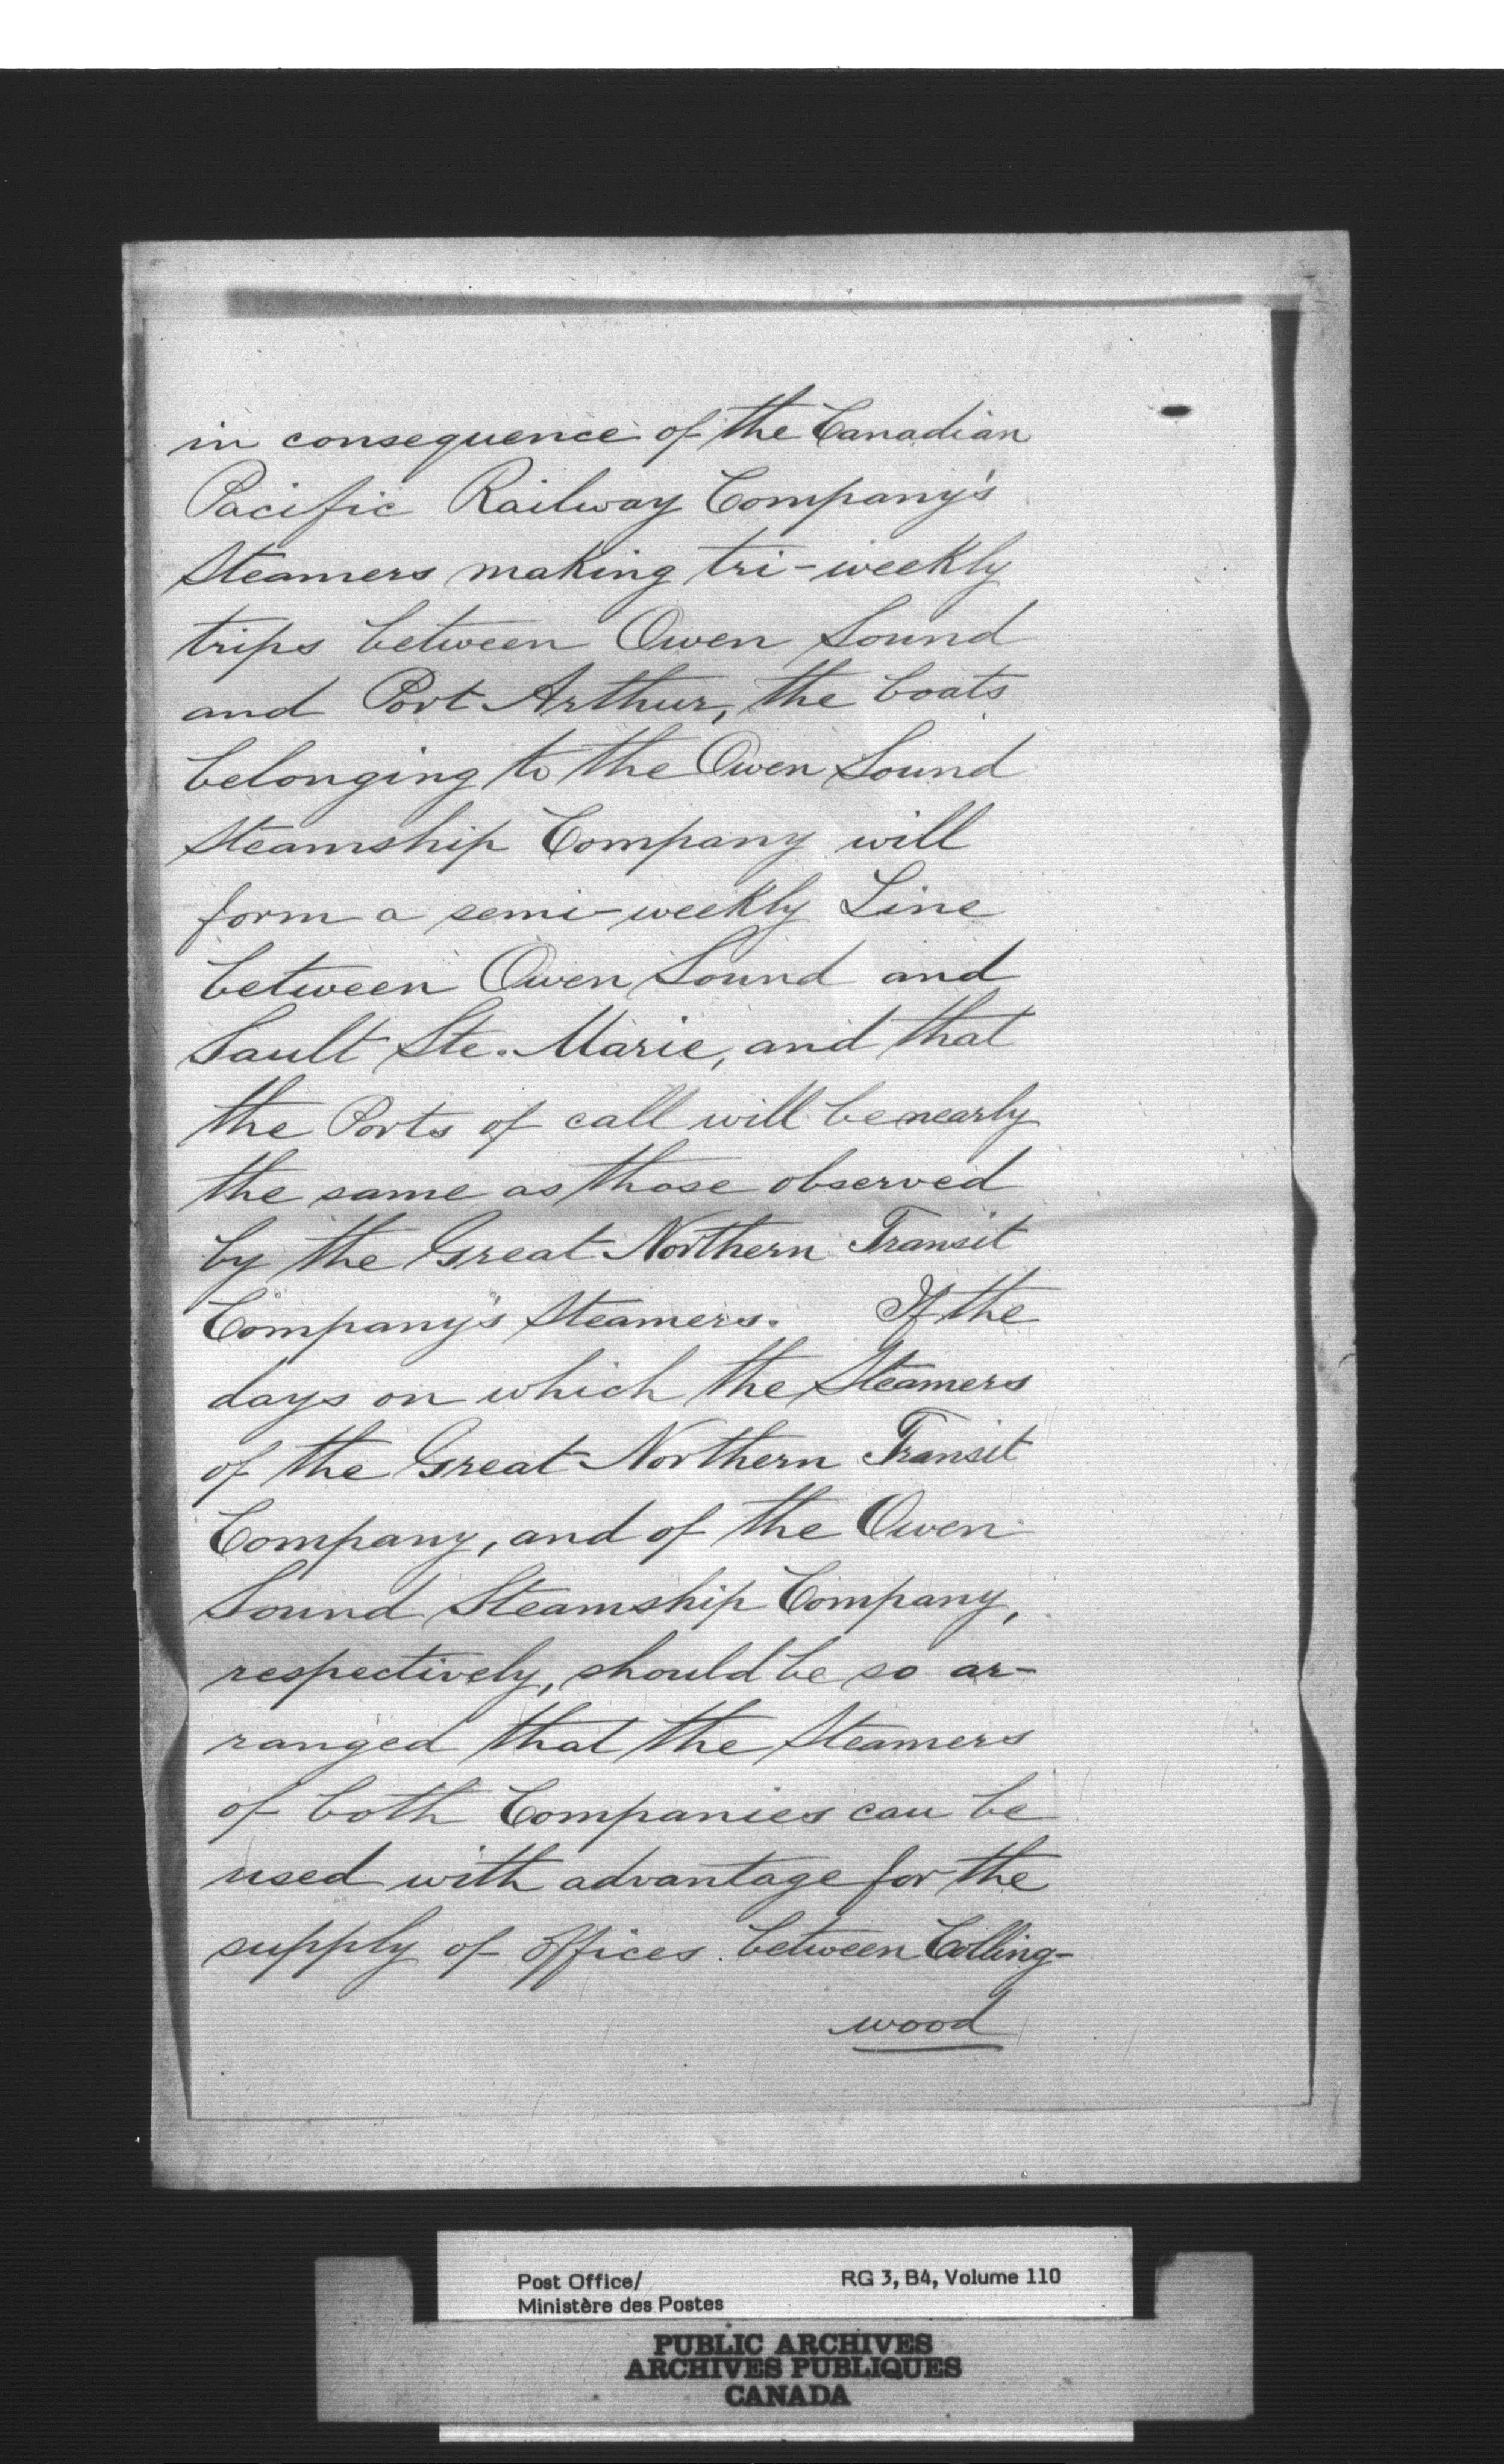 in consequence of the Canadian
Pacific Railway Company's
Steamers making tri-weekly
trips between Owen Sound
and Port Arthur, the boats
belonging to the Owen Sound
Steamship Company will
form a semi-weekly Line
between Owen Sound and
Sault Ste. Marie, and that
the Ports of call will be nearly
the same as those observed
by the Great Northern Transit
Company's Steamers. If the
days on which the Steamers
of the Great Northern Transit
Company, and of the Owen
Sound Steamship Company,
respectively, should be so ar-
ranged that the Steamers
of both Companies can be
used with advantage for the
supply of offices between Colling-
wood
Post Office/ RG 3, B4, Volume 110
Ministère des Postes
PUBLIC ARCHIVES
ARCHIVES PUBLIQUES
CANADA